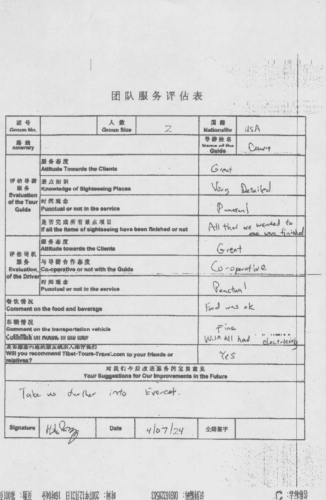 团队服务评估表
团号 人数 国籍 USA
Group No. Group Size 2 Nationality
路线 导游姓名
Itinerary Name of the Guide
服务态度
Attitude Towards the Clients Great
评估导游服务
Evaluation of the Tour Guide
景点知识
Knowledge of Sightseeing Places Very Detailed
时间观念
Punctual or not in the service Punctual
是否完成所有景点项目
If all the items of sightseeing have been finished or not All that we wanted to see was finished
评估司机服务
Evaluation of the Driver
服务态度
Attitude towards the Clients Great
与导游合作态度
Co-operative or not with the Guide Co-operative
时间观念
Punctual or not in the service Punctual
餐饮情况
Comment on the food and beverage Food was ok
车辆情况
Comment on the transportation vehicle Fine
Comment on Hotels in the tour Wish all had electricity
Will you recommend Tibet-Tours-Travel.com to your friends or relatives? Yes
对我们今后改进服务的宝贵意见
Your Suggestions for Our Improvements in the Future
Take us further into Everest.
Signature Date 4/07/24 全陪签字